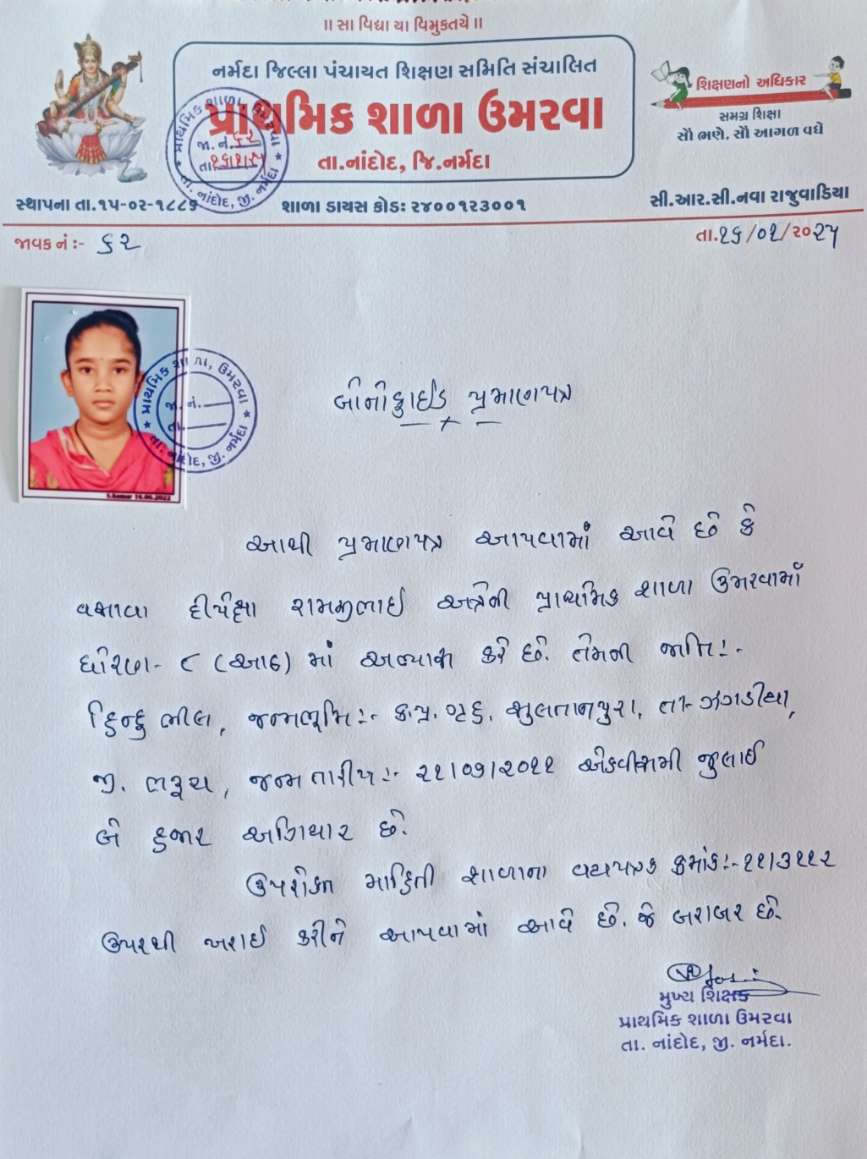 ॥ સા વિદ્યા યા વિમુક્તયે ॥
નર્મદા જિલ્લા પંચાયત શિક્ષણ સમિતિ સંચાલિત
પ્રાથમિક શાળા ઉમરવા
તા.નાંદોદ, જિ.નર્મદા
શિક્ષણનો અધિકાર
સમગ્ર શિક્ષા
સૌ ભણે. સૌ આગળ વધે
સ્થાપના તા.૧૫-૦૨-૧૮૮૬
શાળા ડાયસ કોડઃ ૨૪૦૦૧૨૩૦૦૧
સી.આર.સી.નવા રાજુવાડિયા
પ્રાથમિક શાળા, ઉમરવા
જા. નં. ૬૨
તા.
તા. નાંદોદ, જી. નર્મદા
જાવક નં :- ૬૨
તા.૨૬/૦૨/૨૦૨૫
પ્રાથમિક શાળા, ઉમરવા
જા. નં.
તા.
તા. નાંદોદ, જી. નર્મદા
બોનોફાઈડ પ્રમાણપત્ર
આથી પ્રમાણપત્ર આપવામાં આવે છે કે
વસાવા રામજીભાઈ અત્રેની પ્રાથમિક શાળા ઉમરવામાં
ધોરણ- ૮ (આઠ) માં અભ્યાસ કરે છે. તેમની જાતિ :-
હિન્દુ ભીલ, જન્મભૂમિ :- સુલતાનપુરા, તા- ઝગડીયા,
જી. ભરૂચ, જન્મ તારીખ :- ૨૧/૦૭/૨૦૧૧ એકવીસમી જુલાઈ
બે હજાર અગિયાર છે.
ઉપરોક્ત માહિતી શાળાના વયપત્રક ક્રમાંક :- ૨૨/૩૨૨૨
ઉપરથી ખરાઈ કરીને આપવામાં આવે છે. જે બરાબર છે.
મુખ્ય શિક્ષક
પ્રાથમિક શાળા ઉમરવા
તા. નાંદોદ, જી. નર્મદા.